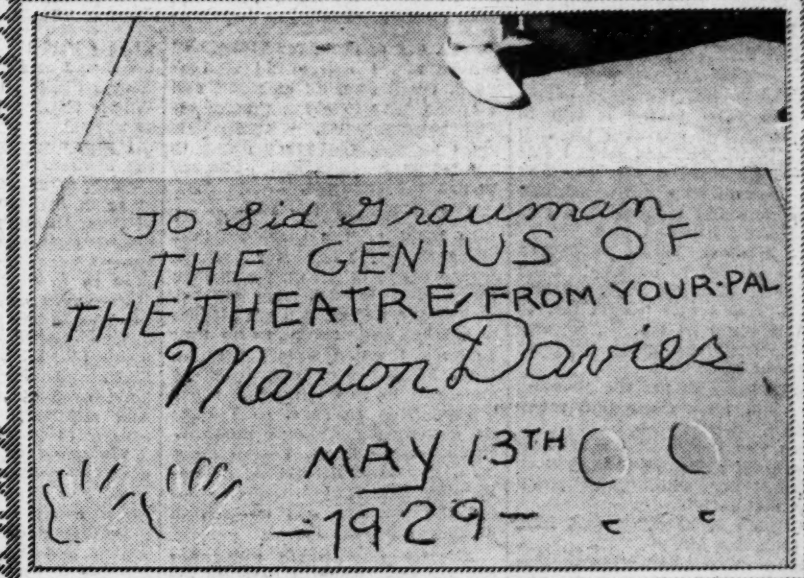 TO Sid Grauman
THE GENIUS OF
THE THEATRE FROM YOUR PAL
Marion Davies
MAY 13TH
-1929-